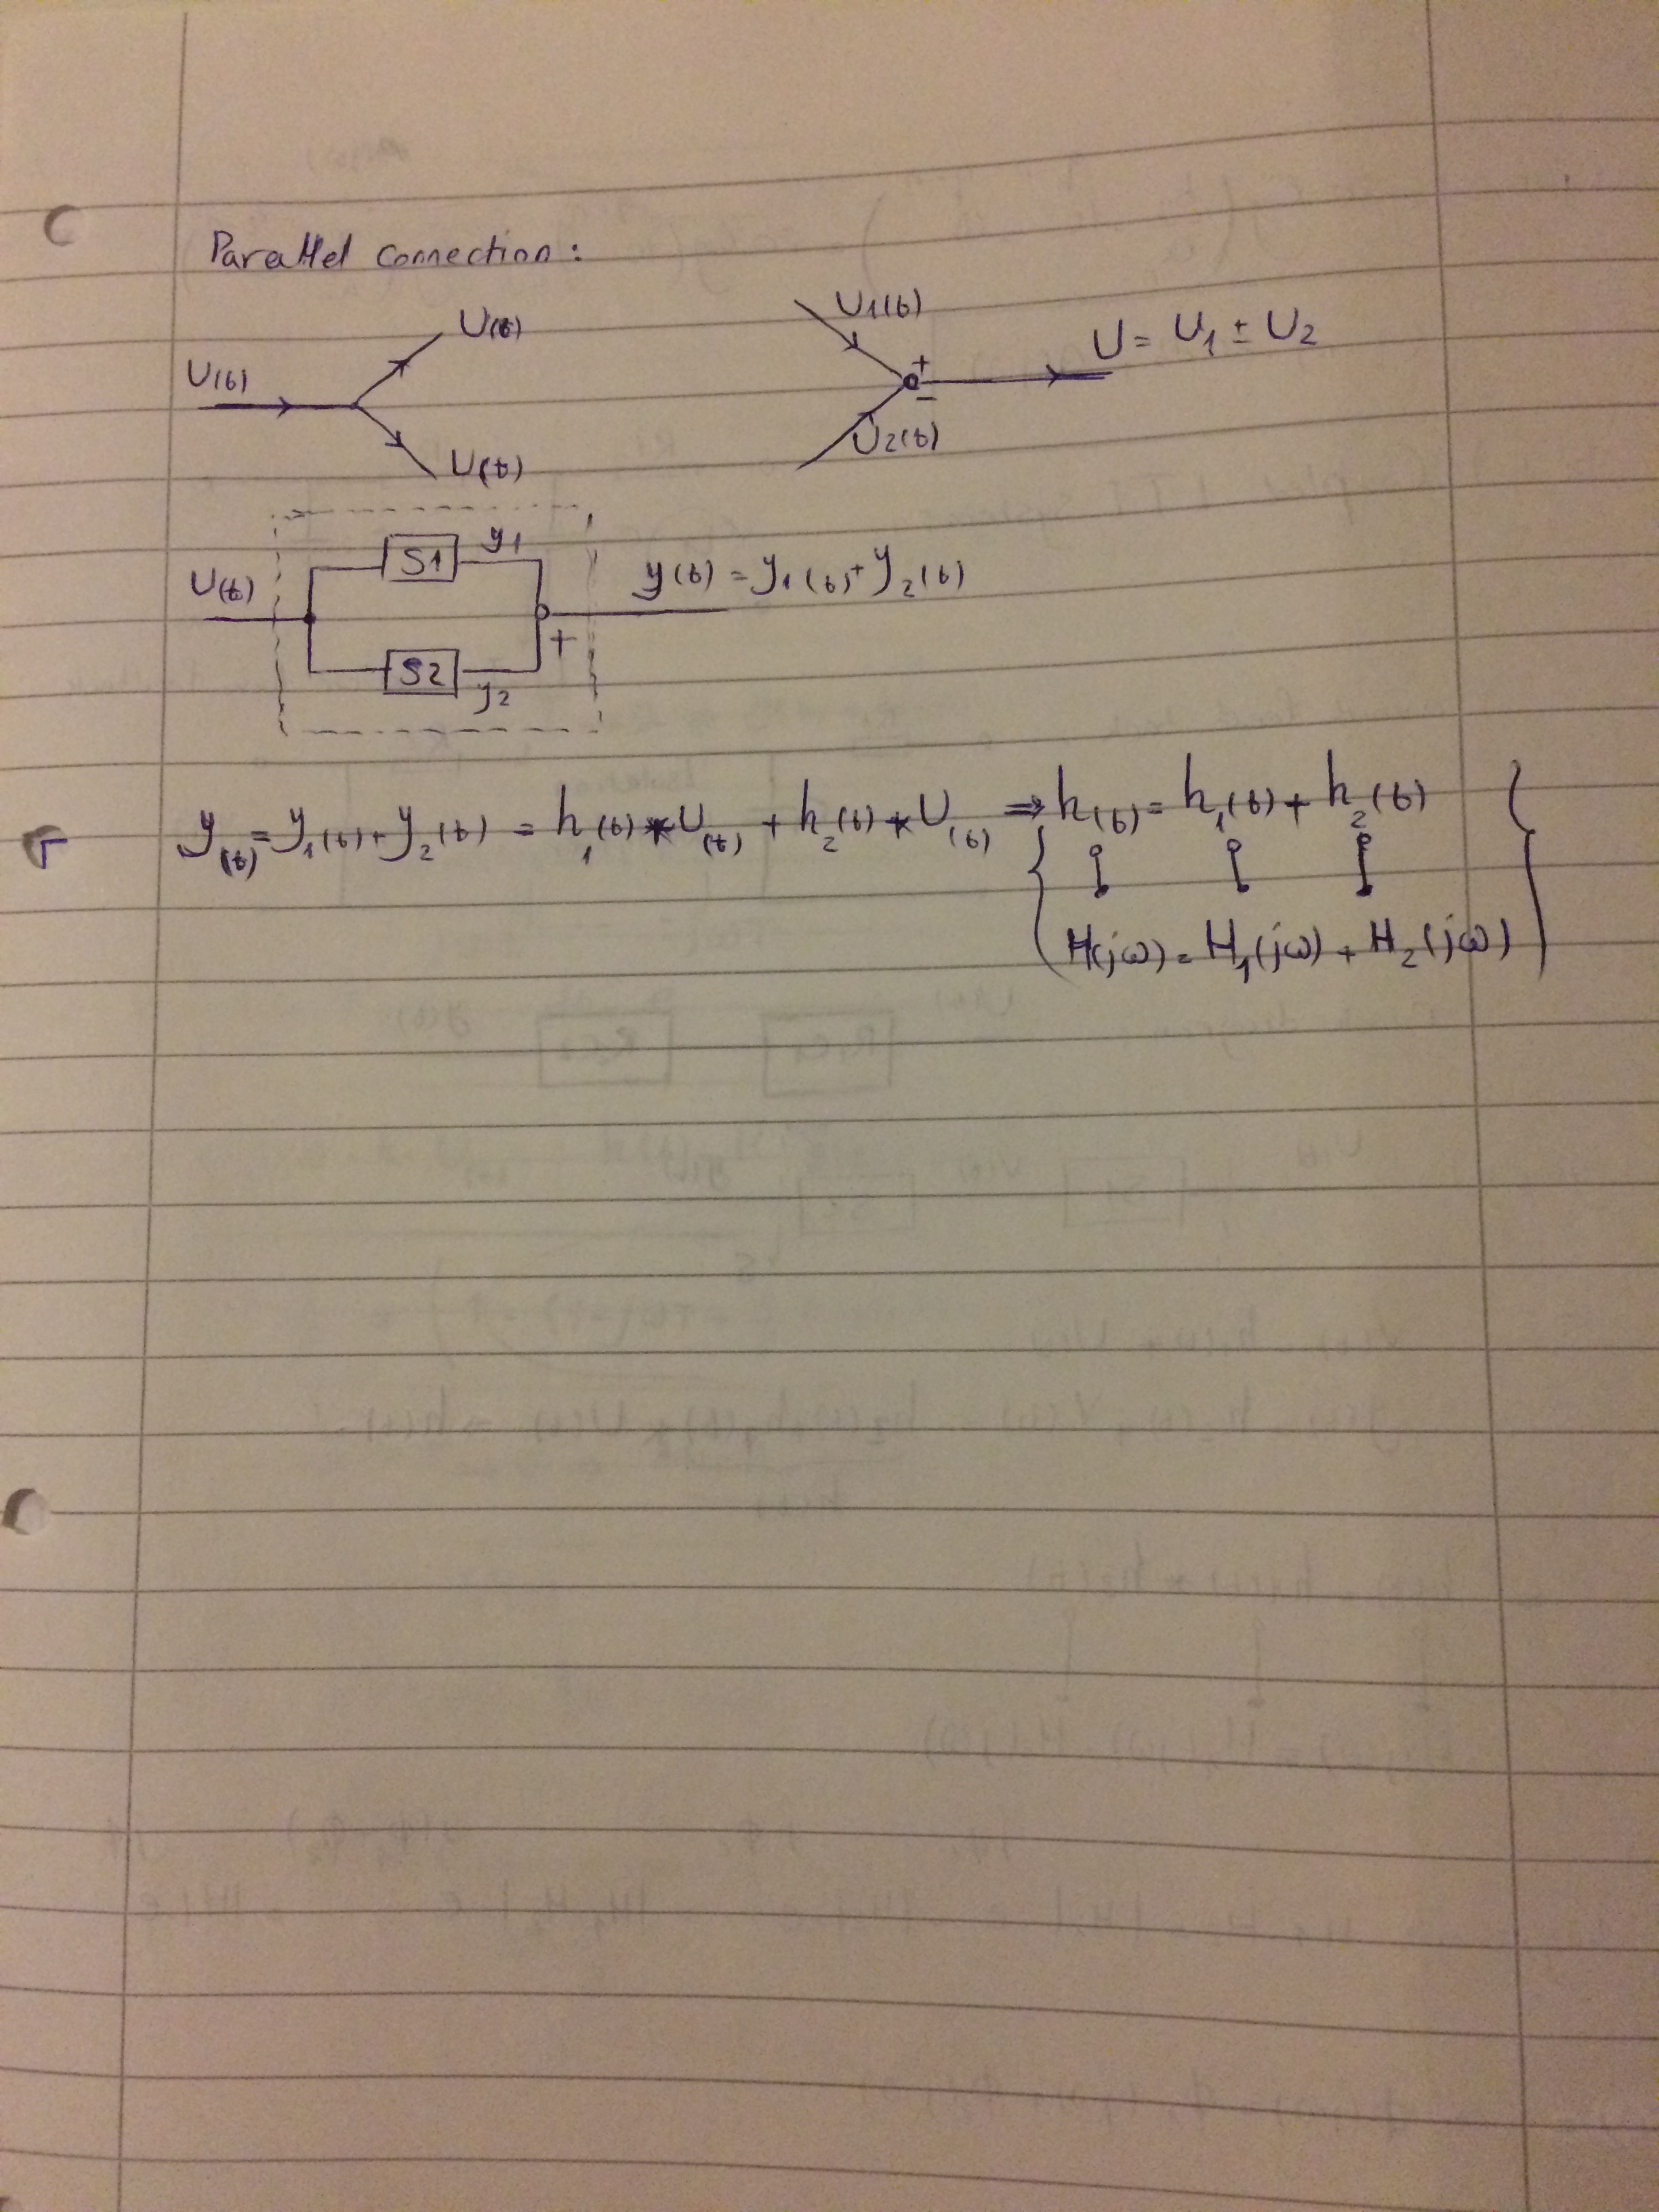 Parallel connection :
U(t) U(t) U(t)
U1(t) U2(t) + - U = U1 ± U2
U(t) S1 y1 S2 y2 + y(t) = y1(t) + y2(t)
y(t) = y1(t) + y2(t) = h1(t) * U(t) + h2(t) * U(t) ⇒ h(t) = h1(t) + h2(t)
H(jω) = H1(jω) + H2(jω)